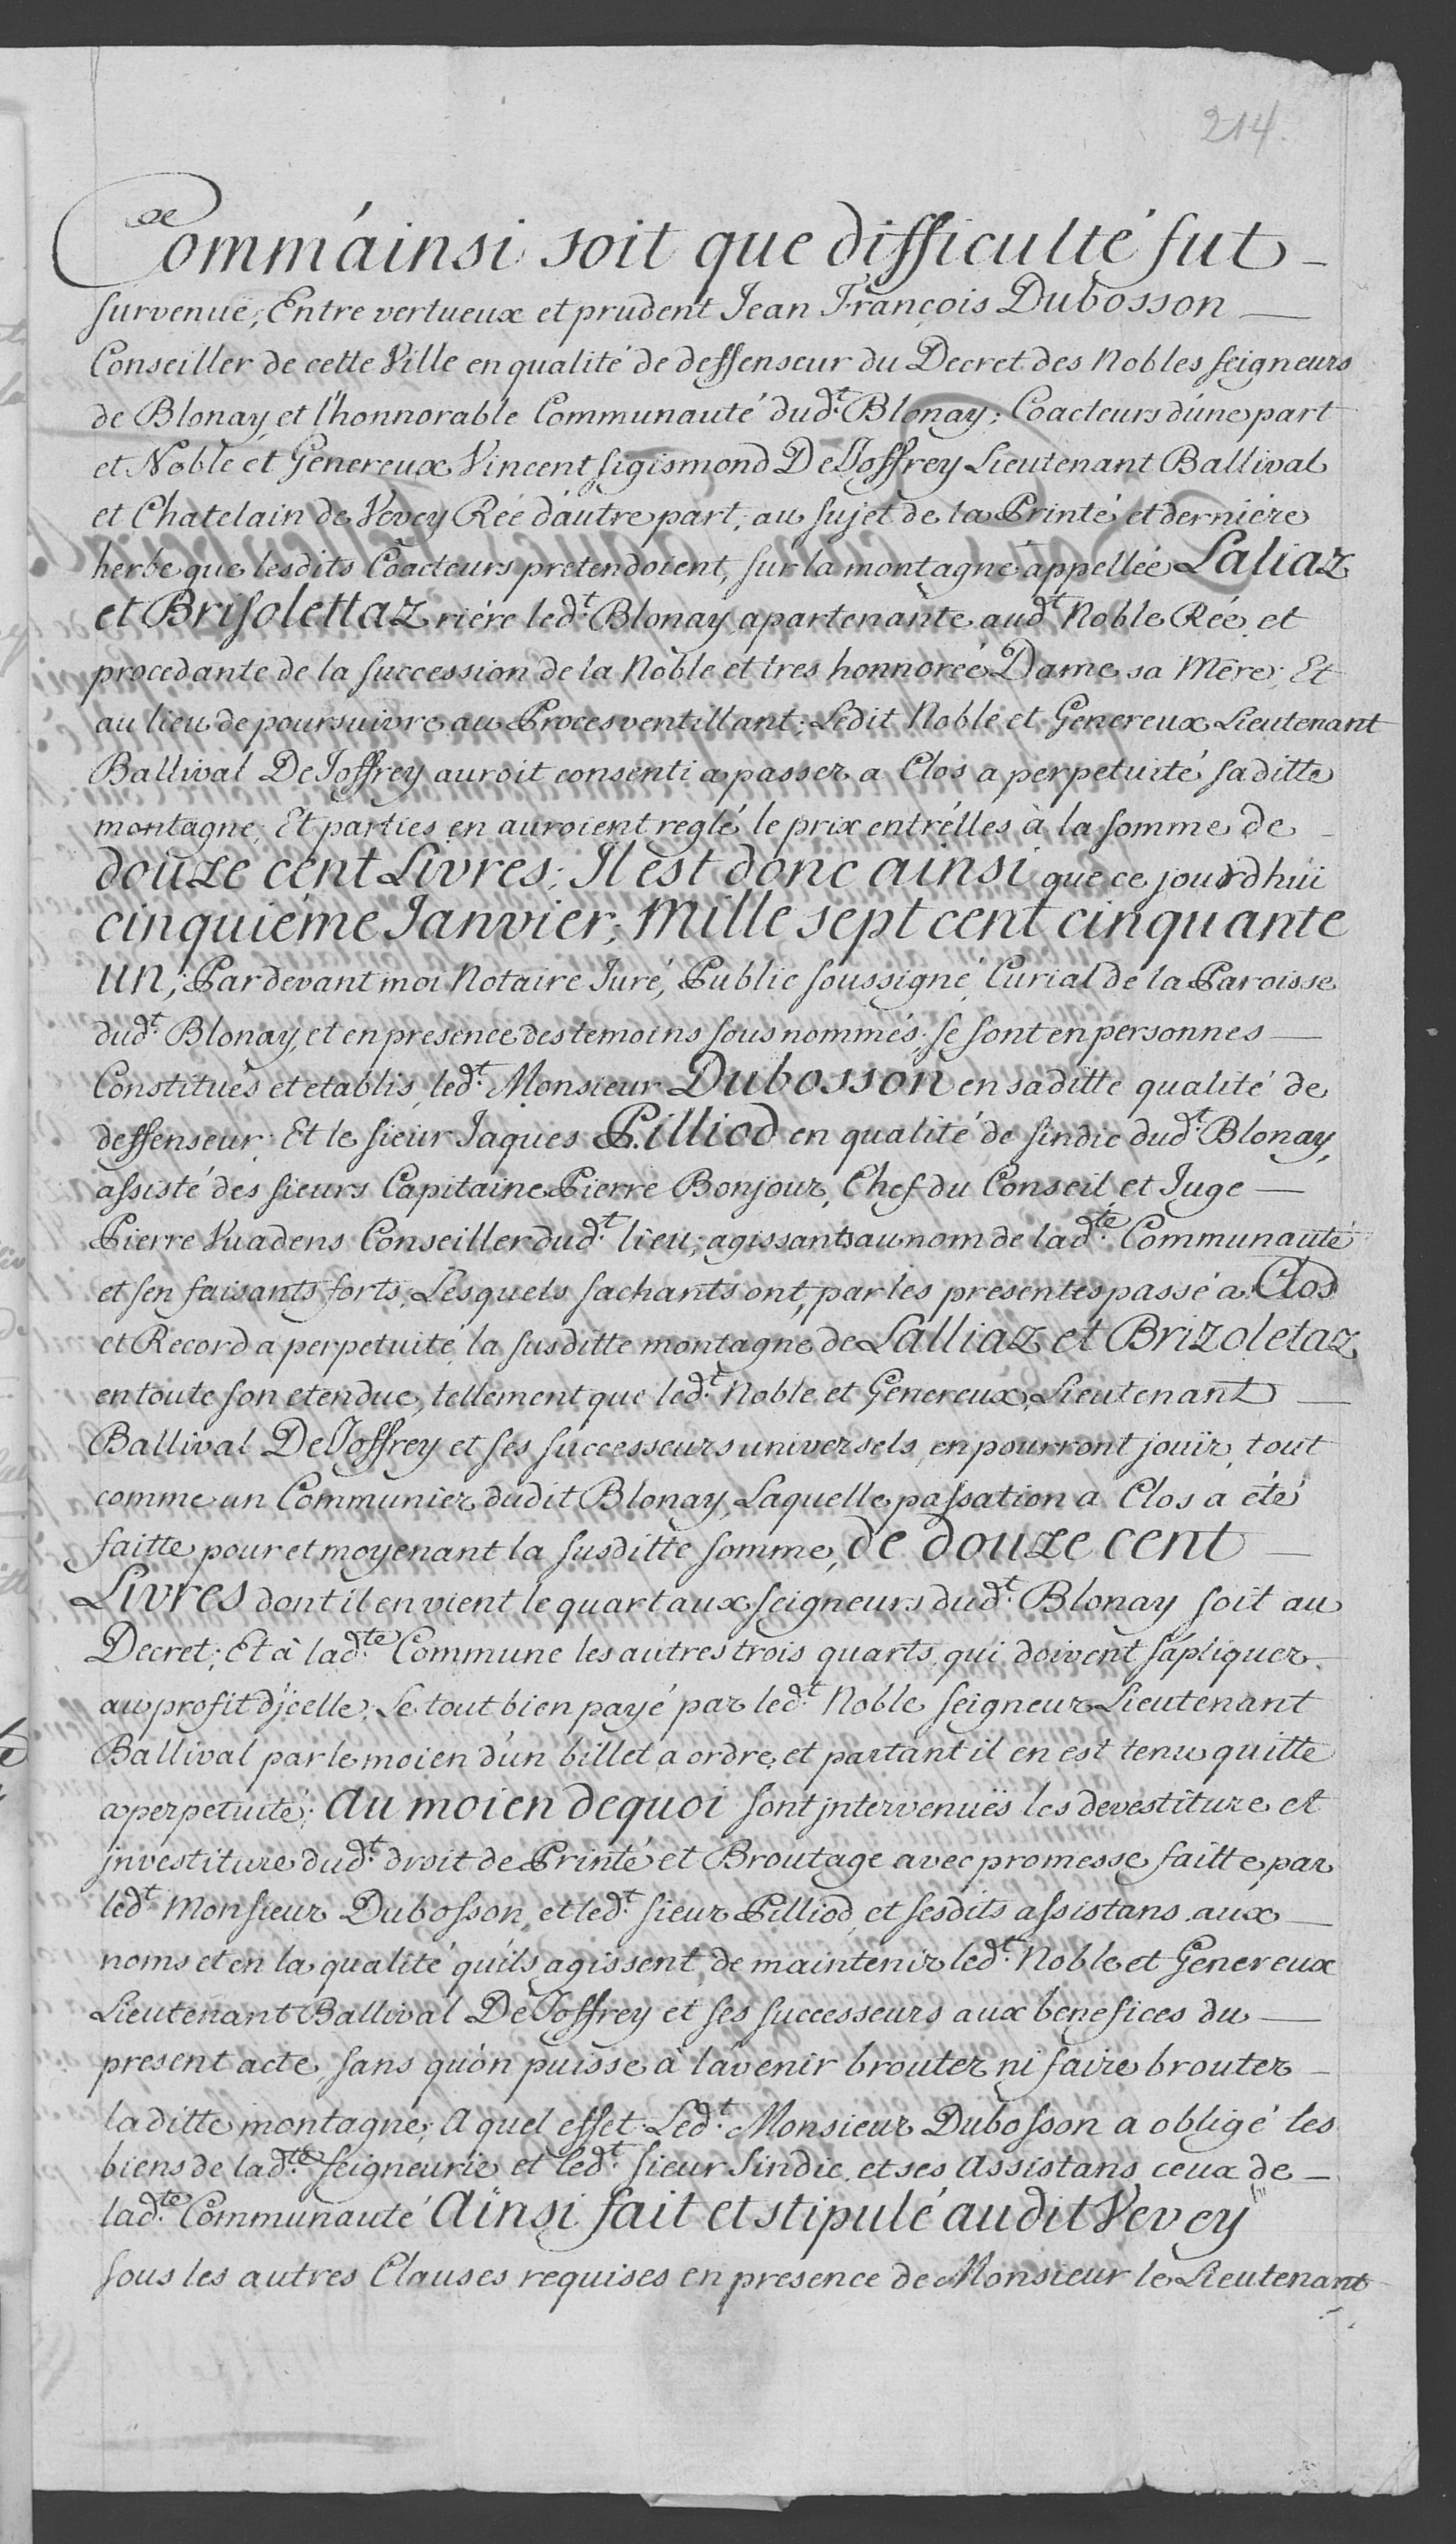 214.
Comm'ainsi soit que difficulté fut
survenue, Entre vertueux et prudent Jean François Dubosson
Conseiller de cette Ville en qualité de deffenseur du Decret des Nobles seigneurs
de Blonay, et l'honnorable Communauté dudt. Blonay; Coacteurs d'une part
et Noble et Genereux Vincent Sigismond DeJoffrey Lieutenant Ballival
et Chatelain de Vevey Rée d'autre part, au sujet de la Printé et derniére
herbe que lesdits Coacteurs pretendoient, sur la montagne appellée Laliaz
et Brisolettaz riére ledt. Blonay, apartenante audt Noble Rée, et
procedante de la succession de la Noble et tres honnorée Dame sa Mére; Et
au lieu de poursuivre au Proces ventillant; Ledit Noble et Genereux Lieutenant
Ballival DeJoffrey auroit consenti a passer a Clos a perpetuité sa ditte
montagne, Et parties en auroient reglé le prix entr'élles à la somme de
douze cent Livres; Il est donc ainsi que ce jourdhui
cinquiéme Janvier, Mille sept cent cinquante
un; Par devant moi Notaire Juré, Public soussigné, Curial de la Paroisse
dudt. Blonay, et en presence des temoins sous nommés; se sont en personnes
Constitués et etablis, ledt. Monsieur Dubosson en saditte qualité de
deffenseur; Et le sieur Jaques Pilliod en qualité de sindic dudt. Blonay,
assisté des sieurs Capitaine Pierre Bonjour, Chef du Conseil et Juge
Pierre Vuadens Conseiller dudt. lieu; agissants au nom de ladte. Communauté
et s'en faisants forts, Lesquels sachants ont, par les presentes passé a Clos
et Record a perpetuité, la susditte montagne de Lalliaz et Brizoletaz
en toute son etendue, tellement que ledt. Noble et Genereux Lieutenant
Ballival DeJoffrey et ses successeurs universels, en pourront jouïr, tout
comme un Communier dudit Blonay, Laquelle passation a Clos a été
faitte pour et moyenant la susditte somme, de douze cent
Livres dont il en vient le quart aux seigneurs dudt. Blonay soit au
Decret; Et à ladte. Commune les autres trois quarts, qui doivent s'apliquer
au profit d'jcelle; Le tout bien payé par ledt. Noble seigneur Lieutenant
Ballival par le moien d'un billet a ordre, et partant il en est tenu quitte
a perpetuité; Au moien dequoi sont jntervenuës les devestiture et
jnvestiture dudt. droit de Printé et Broutage avec promesse faitte par
ledt. Monsieur Dubosson, et ledt. sieur Pilliod, et sesdits assistans aux
noms et en la qualité qu'ils agissent, de maintenir ledt. Noble et Genereux
Lieutenant Ballival DeJoffrey et ses successeurs aux benefices du
present acte, sans qu'on puisse à l'avenir brouter ni faire brouter
la ditte montagne; A quel effet Ledt. Monsieur Dubosson a obligé les
biens de ladte. Seigneurie et ledt. sieur Sindic, et ses Assistans ceux de
ladte. Communauté Ainsi fait et stipulé audit Vevey
sous les autres Clauses requises en presence de Monsieur le Lieutenant